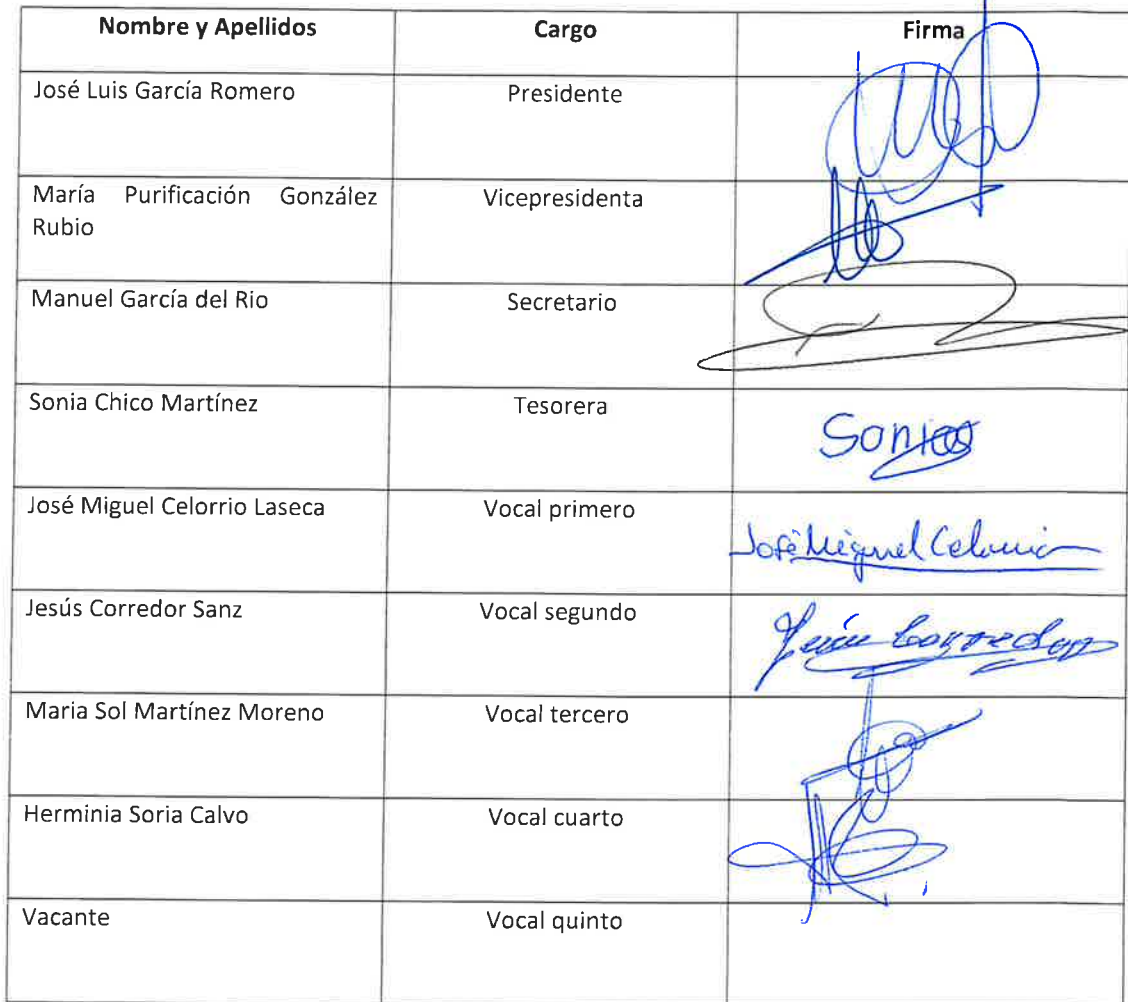 Nombre y Apellidos Cargo Firma
José Luis García Romero Presidente
María Purificación González Vicepresidenta
Rubio
Manuel García del Rio Secretario
Sonia Chico Martínez Tesorera
Sonia
José Miguel Celorrio Laseca Vocal primero
José Miguel Celorrio
Jesús Corredor Sanz Vocal segundo
Jesús Corredor
Maria Sol Martínez Moreno Vocal tercero
Herminia Soria Calvo Vocal cuarto
Vacante Vocal quinto